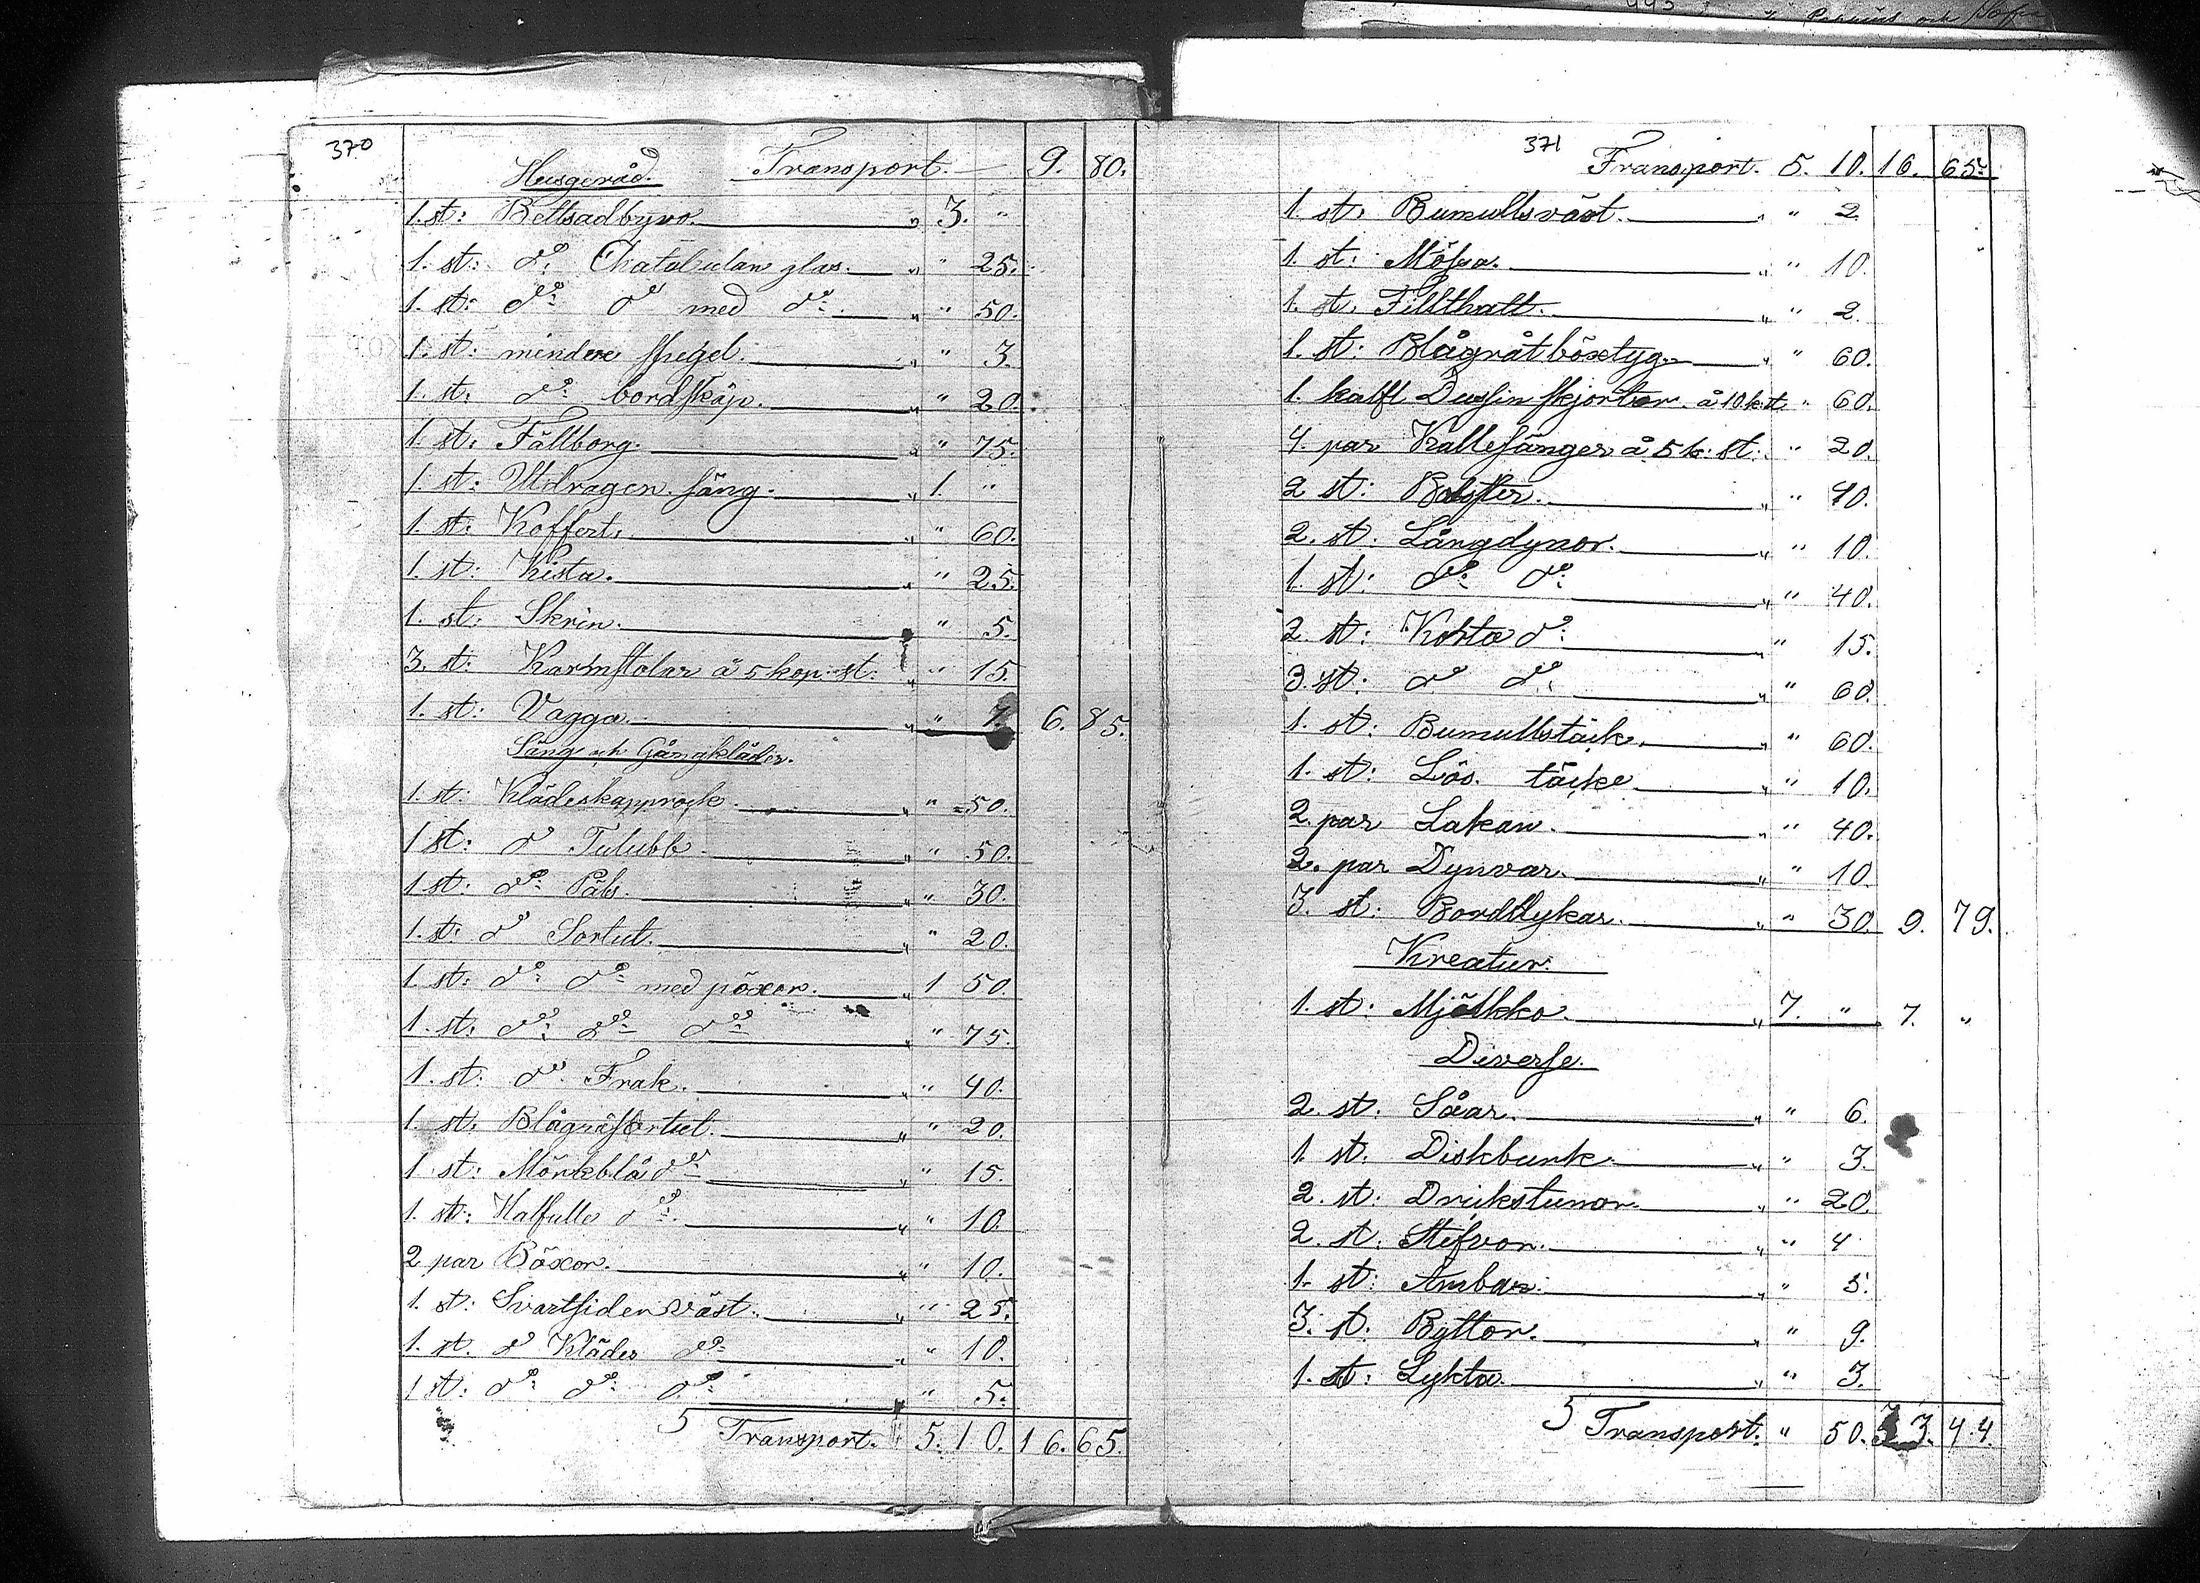 370
Husgeråd. Transport. — 9. 80.
1. st: Bettsadbyro. „ 3. "
1. st: do: Chatulutan glas. „ " 25.
1. st: do: do med do: „ " 50.
1. st: mindere spegel. „ " 3.
1. st. do: bordskåp. „ " 20.
1. st. Fällborg. „ " 75.
1. st: Utdragen säng. „ 1. "
1. st: Koffert. „ " 60.
1. st: Kista. „ " 25.
1. st: Skrin. " 5.
3. st: Karmstolar å 5 kop. st. „ " 15.
1. st: Vagga. „ " 7. 6. 85.
Säng och Gångkläder.
1. st: Klädeskapprock. „ " 50.
1 st: do Tulubb. „ " 50.
1 st: do: Päls. „ " 30.
1. st: do Sortut. „ " 20.
1. st: do: do: med pöxor. „ 1 50.
1. st: do: do: do: „ " 75.
1. st: do: Frak. „ " 40.
1. st. Blågråsortut. „ " 20.
1 st: Mörkblå do: „ " 15.
1. st: Halfulle do: „ " 10.
2 par Böxor. „ " 10.
1. st: Svartsidenväst. „ " 25.
1. st. do Klädes do: „ " 10.
1 st: do: do: do: „ " 5.
5 Transport. 5. 10. 16. 65.
371
Transport. 5. 10. 16. 65.
1. st. Bumullsväst. „ " 2.
1. st: Mössa. „ " 10.
1. st. Fillthatt. „ " 2.
1. st: Blågråtböxtyg. „ " 60.
1. halft Dussin skjortor. à 10 k. st. " 60.
4. par Kallesånger å 5 k: st: " 20.
2 st: Bolster. „ " 40.
2. st. Långdynor. „ " 10.
1. st: do: do: „ " 40.
2. st: Korta do: " 15.
3. st: do do: „ " 60.
1. st: Bumullstäck. „ " 60.
1. st: Lös. täcke „ " 10.
2. par Lakan. „ " 40.
2. par Dynvar. „ " 10.
3. st: Borddykar. " 30. 9. 79.
Kreatur.
1. st: Mjölkko. „ 7. " 7. "
Diverse.
2. st. Såar. „ " 6.
1. st. Diskbunk. „ " 3.
2. st: Drickstunor. „ " 20.
2. st: Stefvor. „ " 4
1. st: Ambar. „ " 5.
3. st. Byttor. „ " 9.
1. st: Lykta. „ " 3.
5 Transport. " 50. 33. 44.